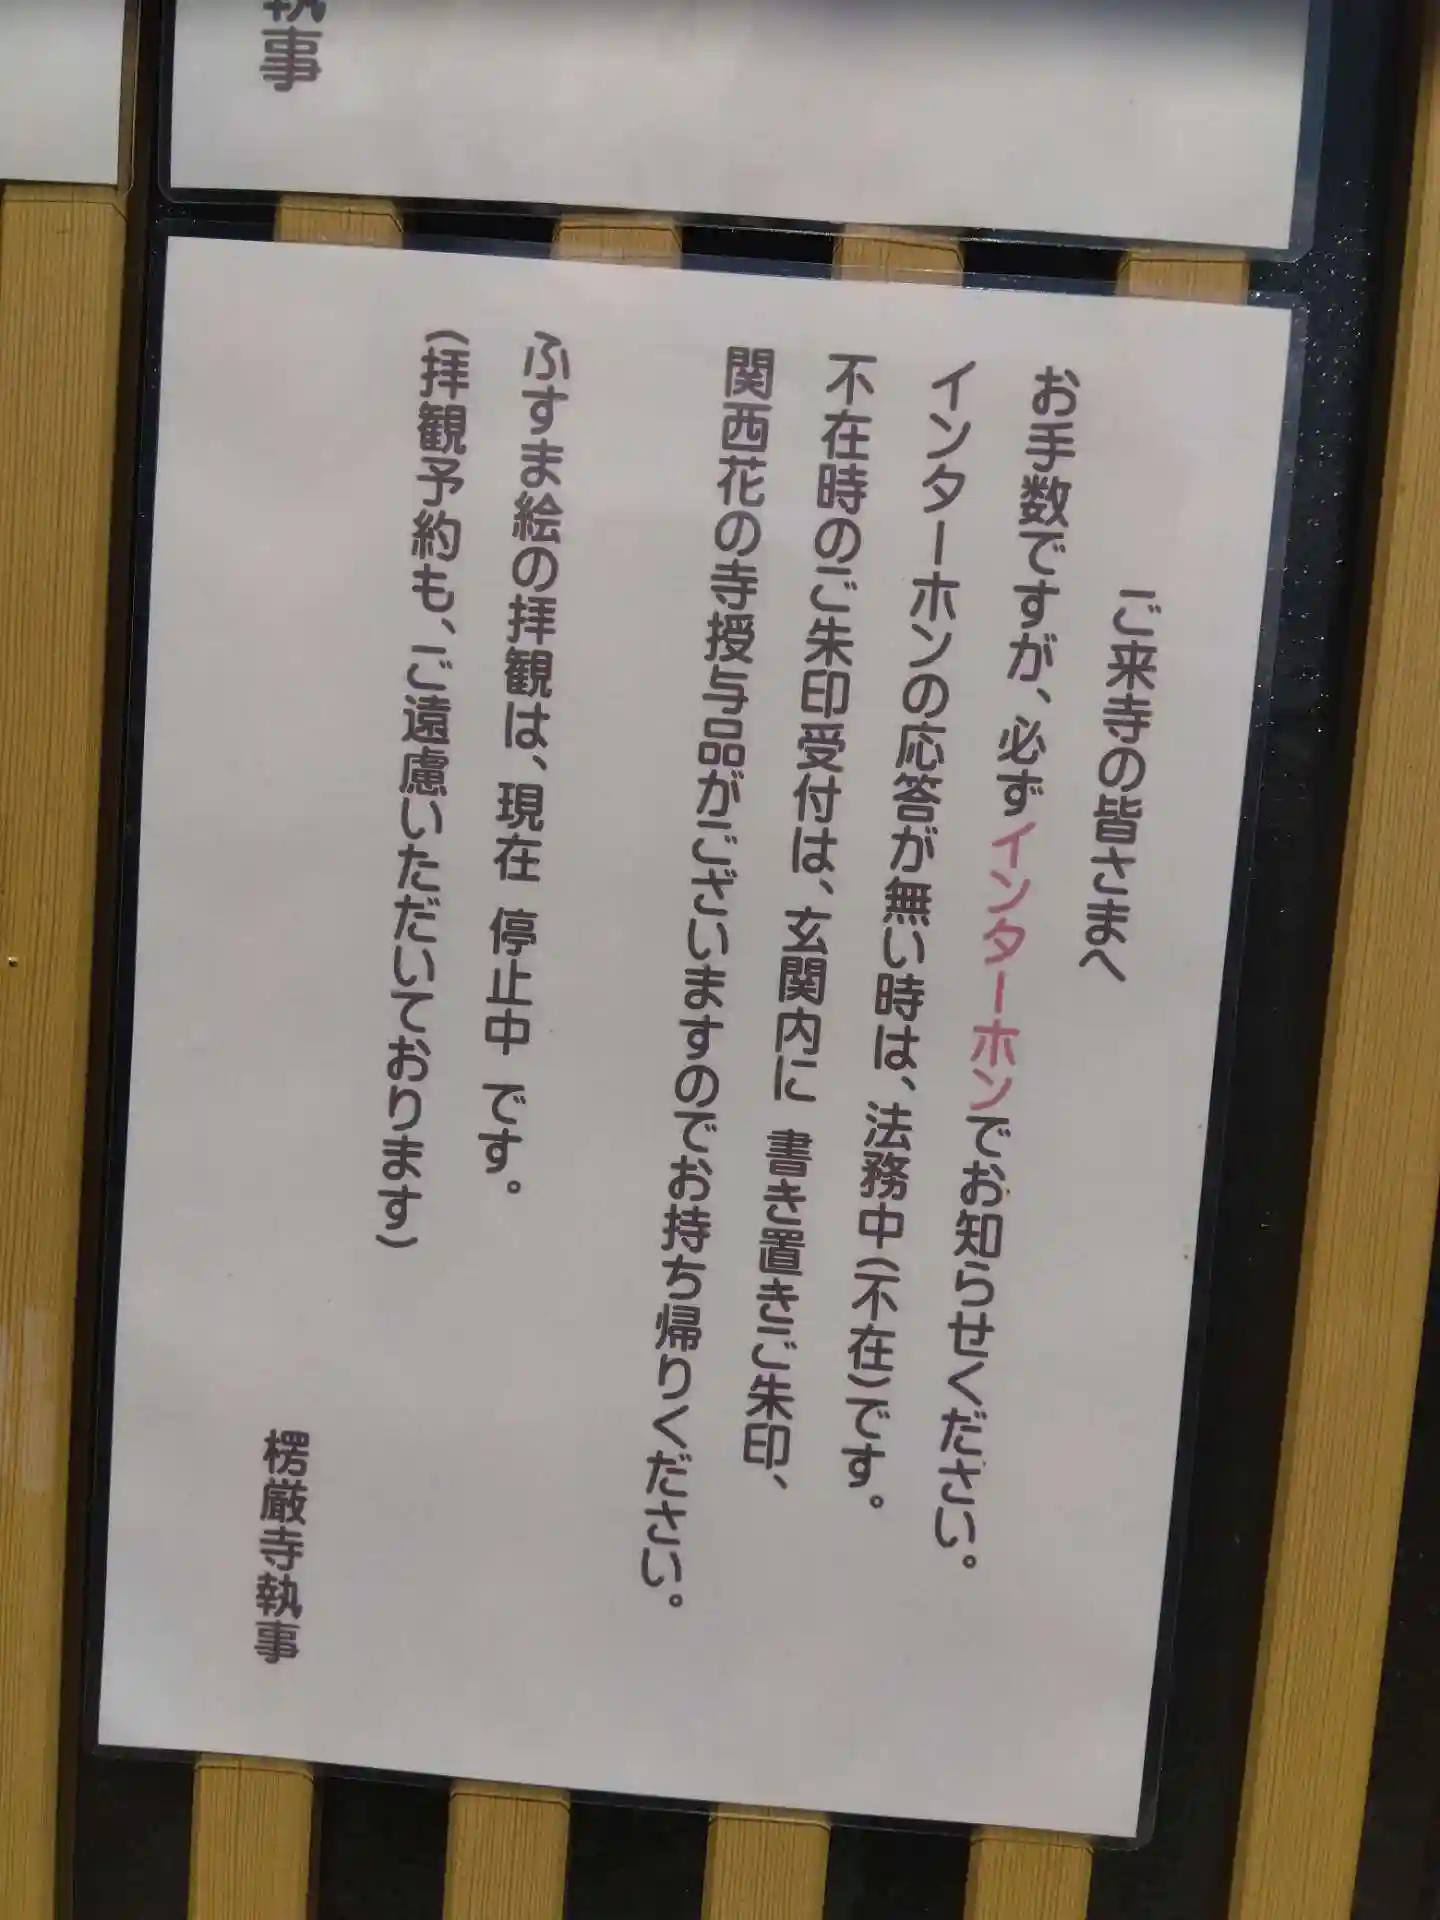 執事
ご来寺の皆さまへ
お手数ですが、必ずインターホンでお知らせください。
インターホンの応答が無い時は、法務中(不在)です。
不在時のご朱印受付は、玄関内に 書き置きご朱印、
関西花の寺授与品がございますのでお持ち帰りください。
ふすま絵の拝観は、現在 停止中 です。
(拝観予約も、ご遠慮いただいております)
楞厳寺執事